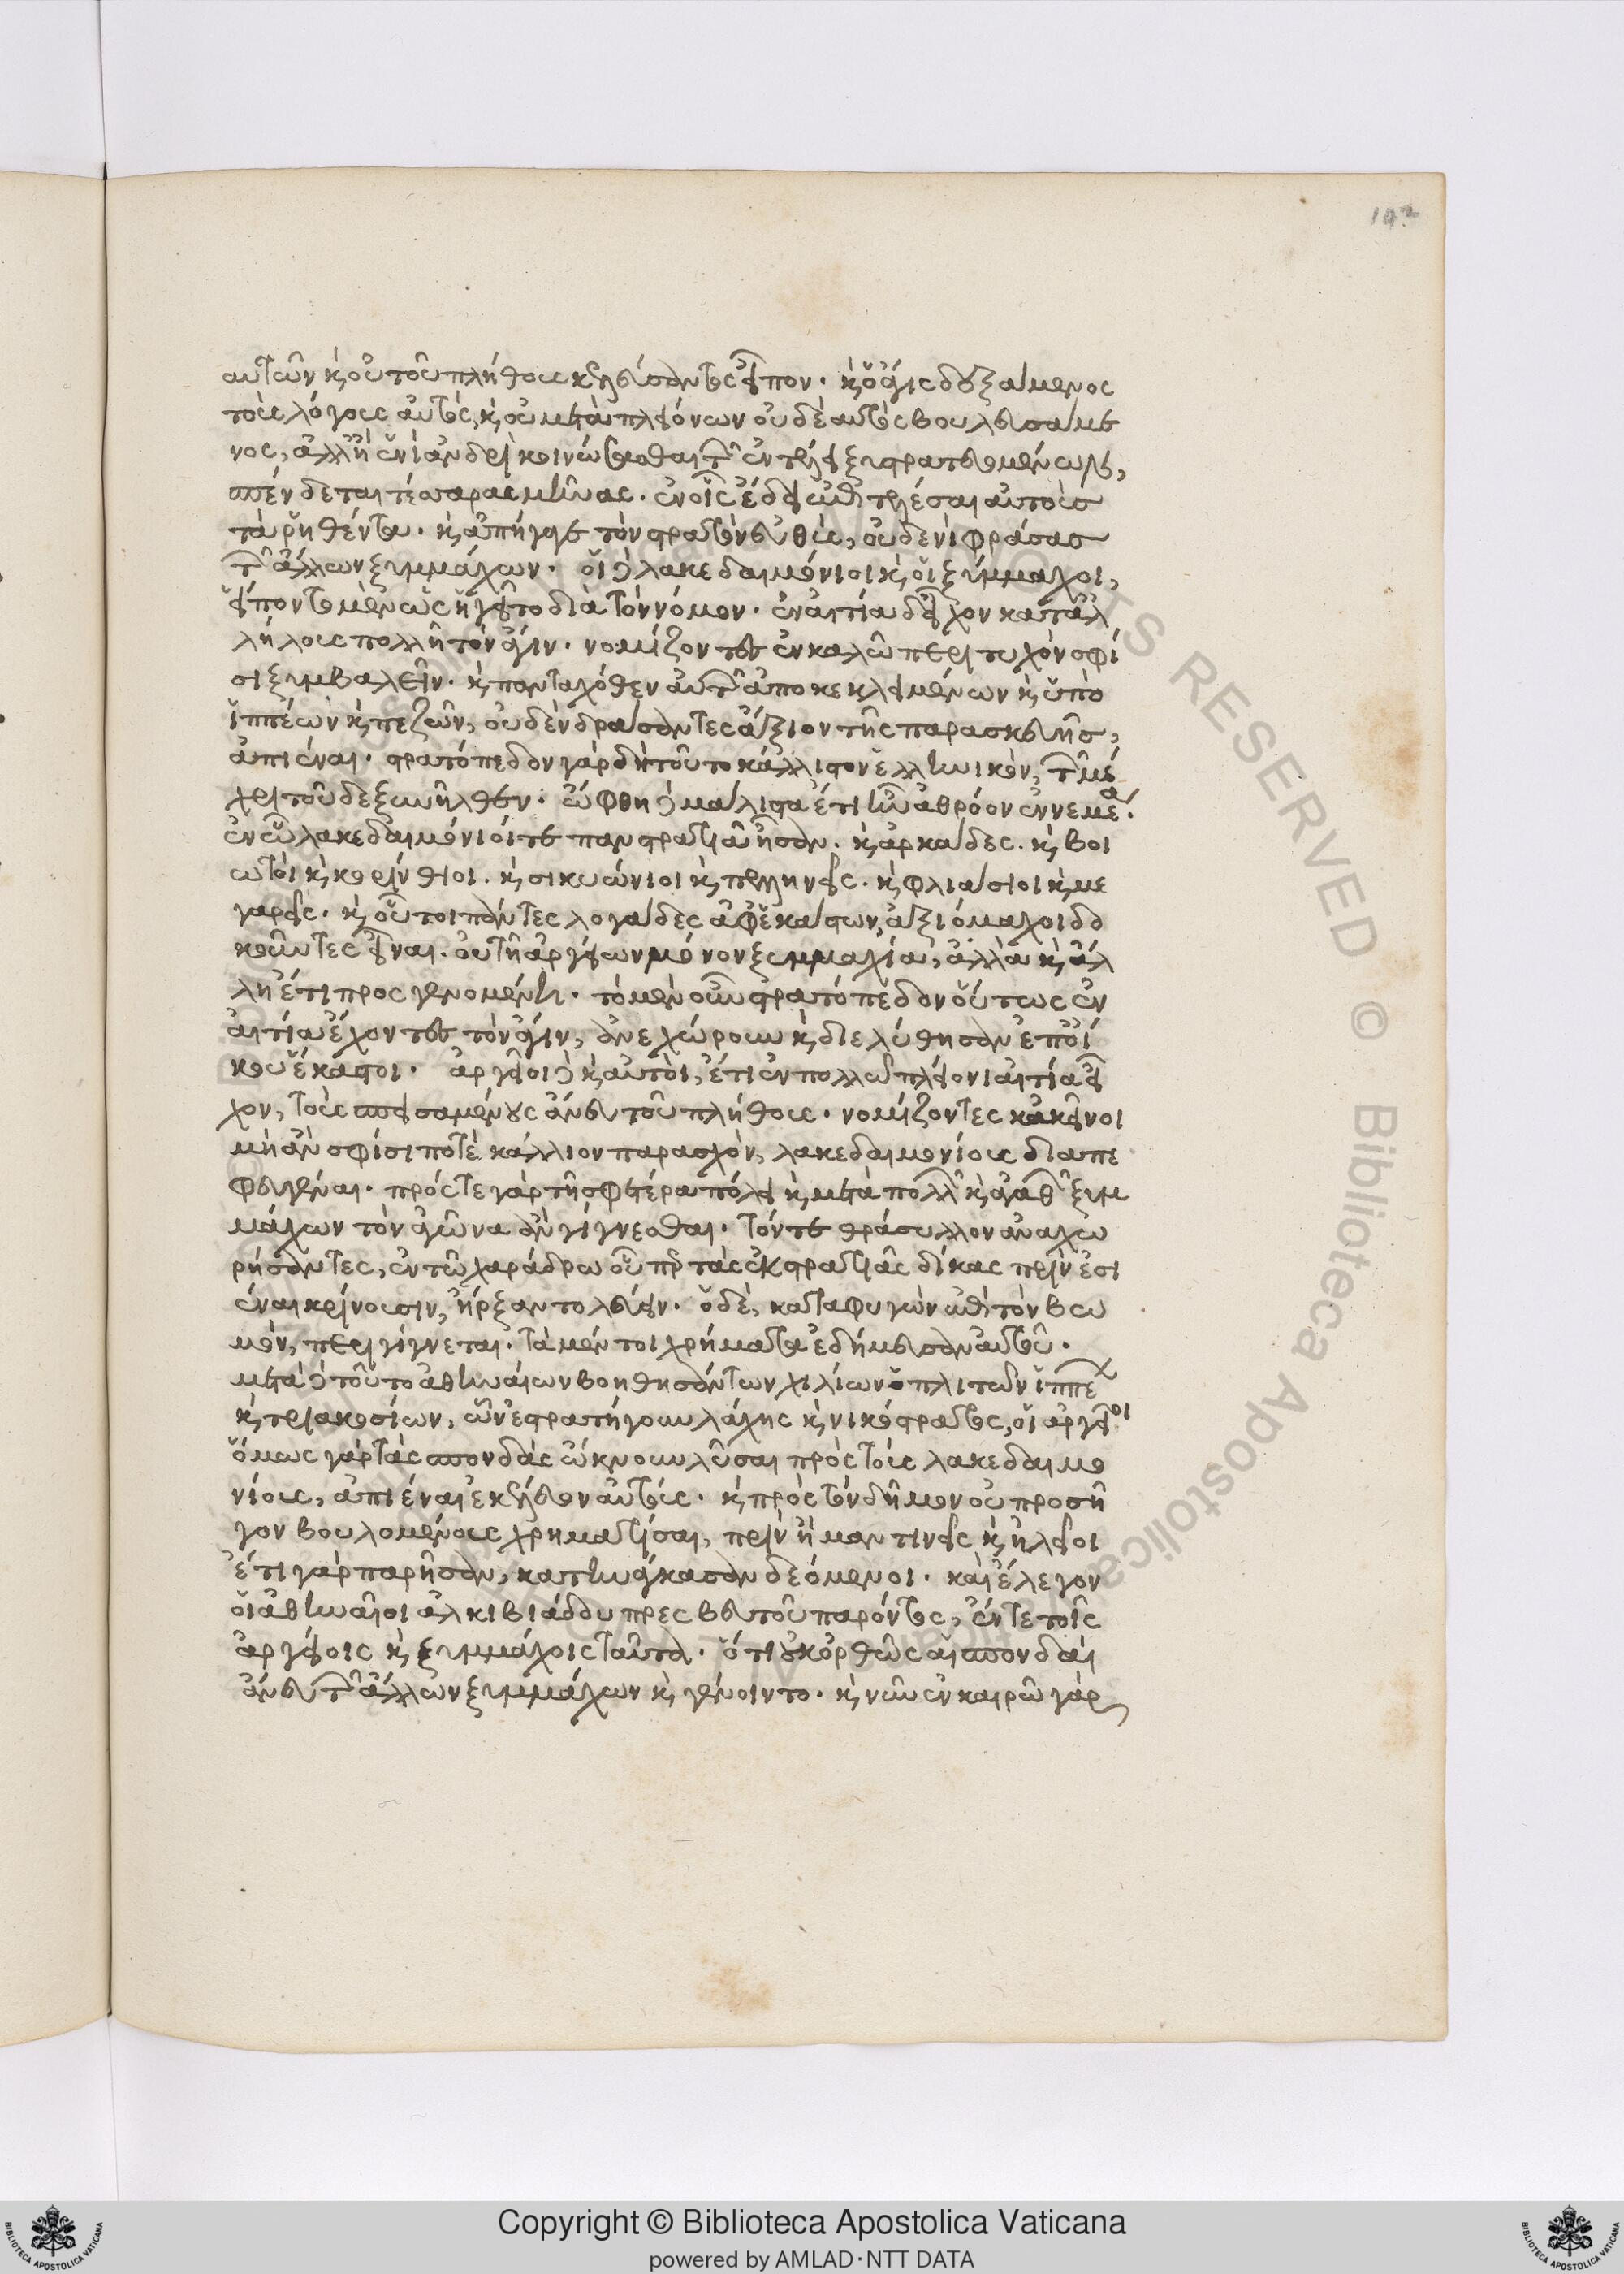 142
αὐτῶν κ οὐ τοῦ πλήθους κελεύσαντες εἶπον. κ ὁ ἄγις δεξάμενος
τοὺς λόγους αὐτὸς, κ οὐ μετὰ πλειόνων οὐδὲ αὐτὸς βουλευσάμε
νος, ἀλλ' ἢ ἑνὶ ἀνδρὶ κοινώσασθαι τῶν ἐν τέλει ξυστρατευομένων,
σπένδεται τέσσαρας μῆνας. ἐν οἷς ἔδει ἐπιτελέσαι αὐτοὺς
τὰ ῥηθέντα. κ ἀπήγαγε τὸν στρατὸν εὐθὺς, οὐδενὶ φράσας
τῶν ἄλλων ξυμμάχων. οἱ δὲ λακεδαιμόνιοι κ οἱ ξύμμαχοι,
εἵποντο μὲν ὡς ἡγεῖτο διὰ τὸν νόμον. ἐν αἰτία δ' εἶχον κατ' ἀλ
λήλους πολλῆ τὸν ἄγιν. νομίζοντες ἐν καλῶ περιτυχὸν σφί
σι ξυμβαλεῖν. κ πανταχόθεν αὐτῶν ἀποκεκλειμένων κ ὑπὸ
ἱππέων κ πεζῶν, οὐδὲν δράσαντες ἄξιον τῆς παρασκευῆς,
ἀπιέναι. στρατόπεδον γὰρ δὴ τοῦτο κάλλιστον ἑλληνικὸν, τῶν μέ
χρι τοῦδε ξυνῆλθεν. ὤφθη δὲ μάλιστα ἔτι ἦν ἀθρόον ἐν νεμέα.
ἐν ὧ λακεδαιμόνιοί τε πανστρατιᾶ ἦσαν. κ ἀρκάδες. κ βοι
ωτοὶ κ κορίνθιοι. κ σικυώνιοι κ πελληνεῖς. κ φλιάσιοι κ με
γαρεῖς. κ οὗτοι πάντες λογάδες ἀφ' ἑκάστων, ἀξιόμαχοι δο
κοῦντες εἶναι. οὐ τῆ ἀργείων μόνον ξυμμαχία, ἀλλὰ κ ἄλ
λη ἔτι προσγενομένη. τὸ μὲν οὖν στρατόπεδον οὕτως ἐν
αἰτία ἔχοντες τὸν ἄγιν, ἀνεχώρουν κ διελύθησαν ἐπ' οἴ
κου ἕκαστοι. ἀργεῖοι δὲ κ αὐτοὶ, ἔτι ἐν πολλῶ πλείονι αἰτία εἶ
χον, τοὺς σπεισαμένους ἄνευ τοῦ πλήθους. νομίζοντες κἀκεῖνοι
μὴ ἂν σφίσι ποτὲ κάλλιον παρασχὸν, λακεδαιμονίους διαπε
φευγέναι. πρός τε γὰρ τῆ σφετέρα πόλει κ μετὰ πολλῶν κ ἀγαθῶν ξυμ
μάχων τὸν ἀγῶνα ἂν γίγνεσθαι. τόν τε θράσυλλον ἀναχω
ρήσαντες, ἐν τῶ χαράδρω οὗπερ τὰς ἐκ στρατιᾶς δίκας πρὶν ἐσι
έναι κρίνουσιν, ἤρξαντο λεύειν. ὁ δὲ, καταφυγὼν ἐπὶ τὸν βω
μὸν, περιγίγνεται. τὰ μέντοι χρήματα ἐδήμευσαν αὐτοῦ.
μετὰ δὲ τοῦτο ἀθηναίων βοηθησάντων χιλίων ὁπλιτῶν ἱππέων
κ τριακοσίων, ὧν ἐστρατήγουν λάχης κ νικόστρατος, οἱ ἀργεῖοι
ὅμως γὰρ τὰς σπονδὰς ὤκνουν λῦσαι πρὸς τοὺς λακεδαιμο
νίους, ἀπιέναι ἐκέλευον αὐτούς. κ πρὸς τὸν δῆμον οὐ προσῆ
γον βουλομένους χρηματίσαι, πρὶν ἢ μαντινεῖς κ ἠλεῖοι
ἔτι γὰρ παρῆσαν, κατηνάγκασαν δεόμενοι. καὶ ἔλεγον
οἱ ἀθηναῖοι ἀλκιβιάδου πρεσβευτοῦ παρόντος, ἔν τε τοῖς
ἀργείοις κ ξυμμάχοις ταῦτα. ὅτι οὐκ ὀρθῶς αἱ σπονδαὶ
ἄνευ τῶν ἄλλων ξυμμάχων κ γένοιντο. κ νῦν ἐν καιρῶ γὰρ
Copyright © Biblioteca Apostolica Vaticana
powered by AMLAD·NTT DATA